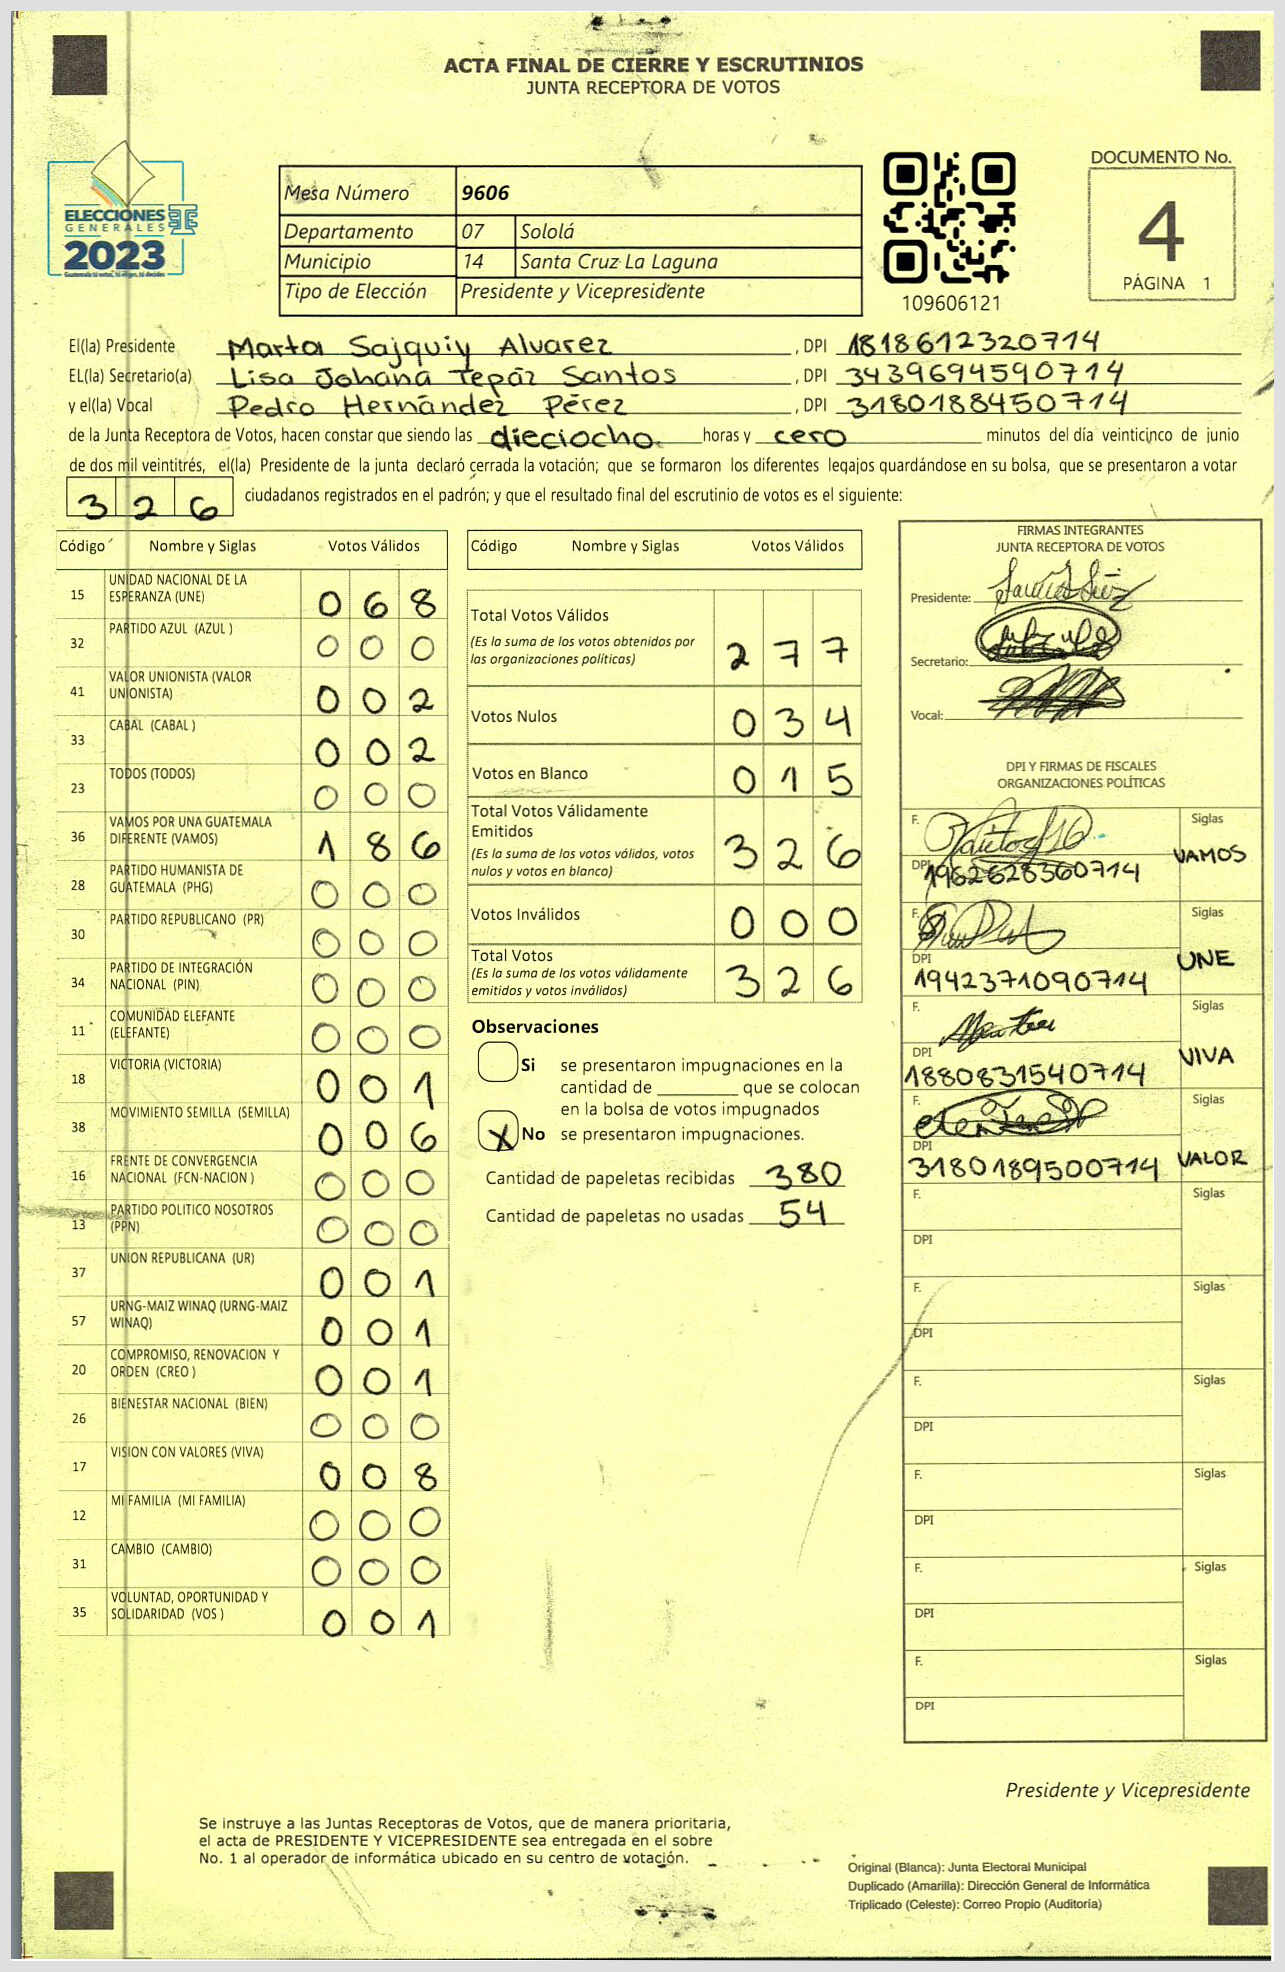 ACTA FINAL DE CIERRE Y ESCRUTINIOS
JUNTA RECEPTORA DE VOTOS
ELECCIONES
GENERALES
2023
Mesa Número 9606
Departamento 07 Sololá
Municipio 14 Santa Cruz La Laguna
Tipo de Elección Presidente y Vicepresidente
109606121
DOCUMENTO No.
4
PÁGINA 1
El(la) Presidente Marta Sajquiy Alvarez , DPI 1818612320714
EL(la) Secretario(a) Lisa Johana Tepáz Santos , DPI 3439694590714
y el(la) Vocal Pedro Hernández Pérez , DPI 3180188450714
de la Junta Receptora de Votos, hacen constar que siendo las dieciocho horas y cero minutos del día veinticinco de junio
de dos mil veintitrés, el(la) Presidente de la junta declaró cerrada la votación; que se formaron los diferentes legajos guardándose en su bolsa, que se presentaron a votar
326 ciudadanos registrados en el padrón; y que el resultado final del escrutinio de votos es el siguiente:
Código Nombre y Siglas Votos Válidos
15 UNIDAD NACIONAL DE LA ESPERANZA (UNE) 068
32 PARTIDO AZUL (AZUL ) 000
41 VALOR UNIONISTA (VALOR UNIONISTA) 002
33 CABAL (CABAL ) 002
23 TODOS (TODOS) 000
36 VAMOS POR UNA GUATEMALA DIFERENTE (VAMOS) 186
28 PARTIDO HUMANISTA DE GUATEMALA (PHG) 000
30 PARTIDO REPUBLICANO (PR) 000
34 PARTIDO DE INTEGRACIÓN NACIONAL (PIN) 000
11 COMUNIDAD ELEFANTE (ELEFANTE) 000
18 VICTORIA (VICTORIA) 001
38 MOVIMIENTO SEMILLA (SEMILLA) 006
16 FRENTE DE CONVERGENCIA NACIONAL (FCN-NACION ) 000
13 PARTIDO POLITICO NOSOTROS (PPN) 000
37 UNION REPUBLICANA (UR) 001
57 URNG-MAIZ WINAQ (URNG-MAIZ WINAQ) 001
20 COMPROMISO, RENOVACION Y ORDEN (CREO ) 001
26 BIENESTAR NACIONAL (BIEN) 000
17 VISION CON VALORES (VIVA) 008
12 MI FAMILIA (MI FAMILIA) 000
31 CAMBIO (CAMBIO) 000
35 VOLUNTAD, OPORTUNIDAD Y SOLIDARIDAD (VOS ) 001
Código Nombre y Siglas Votos Válidos
Total Votos Válidos
(Es la suma de los votos obtenidos por
las organizaciones políticas) 277
Votos Nulos 034
Votos en Blanco 015
Total Votos Válidamente
Emitidos
(Es la suma de los votos válidos, votos
nulos y votos en blanco) 326
Votos Inválidos 000
Total Votos
(Es la suma de los votos válidamente
emitidos y votos inválidos) 326
Observaciones
Si se presentaron impugnaciones en la
cantidad de ________ que se colocan
en la bolsa de votos impugnados
X No se presentaron impugnaciones.
Cantidad de papeletas recibidas 380
Cantidad de papeletas no usadas 54
FIRMAS INTEGRANTES
JUNTA RECEPTORA DE VOTOS
Presidente:
Secretario:
Vocal:
DPI Y FIRMAS DE FISCALES
ORGANIZACIONES POLÍTICAS
F. Siglas
DPI 1962628360714 VAMOS
F. Siglas
DPI 1942371090714 UNE
F. Siglas
DPI 1880831540714 VIVA
F. Siglas
DPI 3180189500714 VALOR
F. Siglas
DPI
F. Siglas
DPI
F. Siglas
DPI
F. Siglas
DPI
F. Siglas
DPI
F. Siglas
DPI
Presidente y Vicepresidente
Se instruye a las Juntas Receptoras de Votos, que de manera prioritaria,
el acta de PRESIDENTE Y VICEPRESIDENTE sea entregada en el sobre
No. 1 al operador de informática ubicado en su centro de votación.
Original (Blanca): Junta Electoral Municipal
Duplicado (Amarilla): Dirección General de Informática
Triplicado (Celeste): Correo Propio (Auditoría)